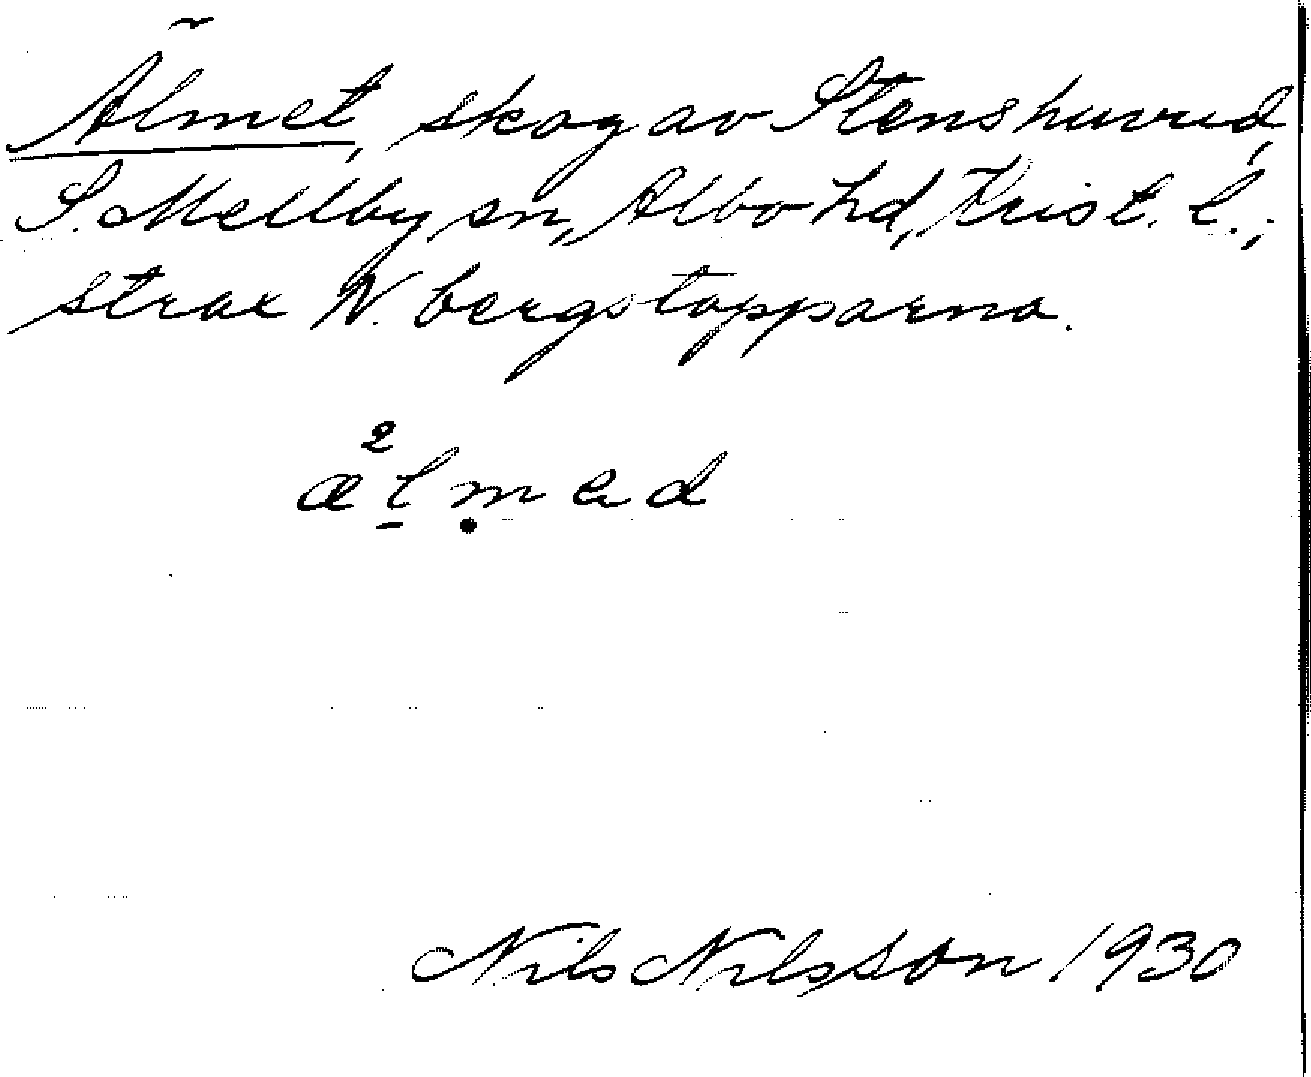 Älmet, skog av Stenshuvud,
S. Mellby sn, Albo hd, Krist. l.,
strax N. bergstopparna.
æ²l̠ṃəd
Nils Nilsson 1930